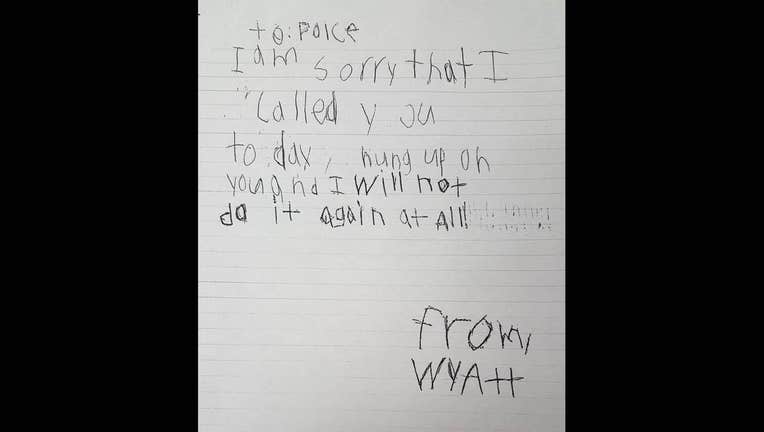 to: POlCE
I am sorry that I
called you
to day, hung up on
you and I will not
do it again at All!
from,
WYAtt